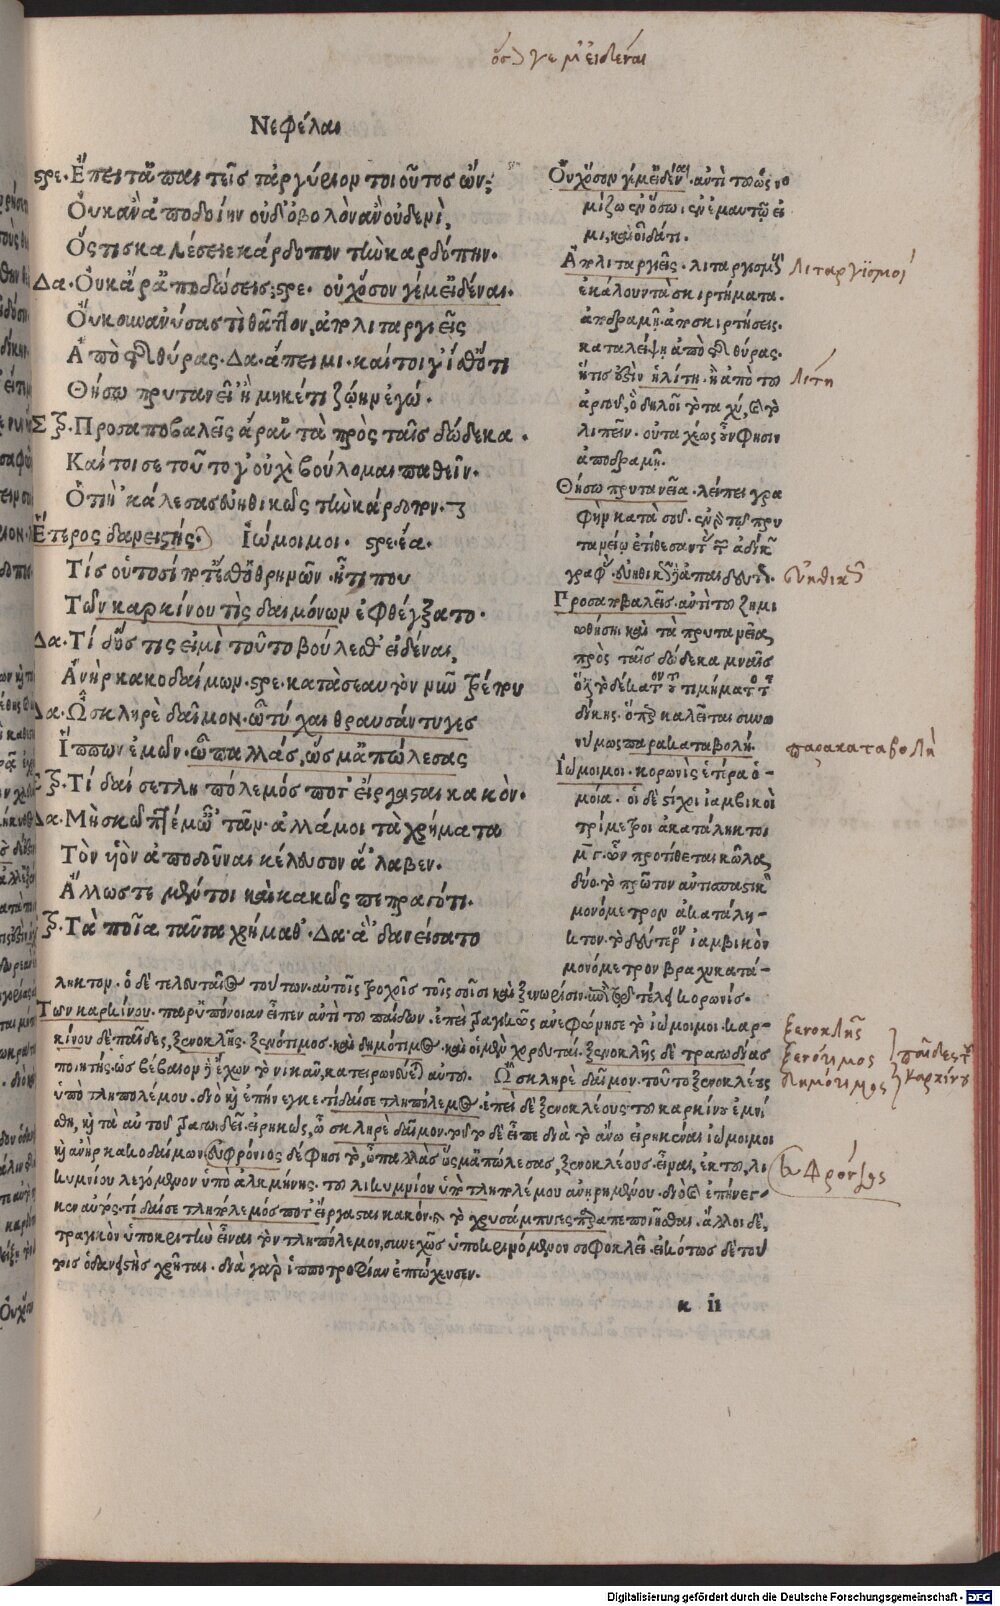 ὅσον γε μ' εἰδέναι
Νεφέλαι
ϛρε. Ἔπειτα παι τεῖς τἀργύριον τοιοῦτος ὤν;
Οὐκ ἂν ἀποδοίην οὐδ' ὀβολὸν ἂν οὐδενὶ,
Ὅστις καλέσειε κάρδοπον τὴν καρδόπην.
Δα. Οὐκ ἄρ' ἀποδώσεις; ϛρε. οὐχ ὅσον γέ μ' εἰδέναι.
Οὔκουν ἀνύσας τὶ θᾶττον, ἀπολιταργιεῖς
Ἀπὸ τῆς θύρας. Δα. ἄπειμι. καίτοι γ' ἴσθ' ὅτι
Θήσω πρυτανεῖ' ἢ μηκέτι ζῴην ἐγώ.
Στρ. Προσαποβαλεῖς ἄρ' αὐτὰ πρὸς ταῖς δώδεκα.
Καίτοι σε τοῦτό γ' οὐχὶ βούλομαι παθεῖν.
Ὁτιὴ 'κάλεσας εὐηθικῶς τὴν κάρδοπον.
Ἕτερος δανειστής. Ἰώ μοι μοι. ϛρε. ἔα.
Τίς οὑτοσί ποτ' ἔσθ' ὁ θρηνῶν. ἤτι που
Τῶν καρκίνου τὶς δαιμόνων ἐφθέγξατο.
Δα. Τί δ' ὅστις εἰμὶ τοῦτο βούλεσθ' εἰδέναι,
Ἀνὴρ κακοδαίμων. ϛρε. κατὰ σεαυτόν νυν τρέπου
Δα. Ὦ σκληρὲ δαῖμον. ὦ τύχαι θραυσάντυγες
Ἵππων ἐμῶν. ὦ παλλάς, ὥς μ' ἀπώλεσας
Στρ. Τί δαί σε τληπόλεμός ποτ' εἴργασται κακόν.
Δα. Μὴ σκῶπτέ μ' ὦ τᾶν. ἀλλά μοι τὰ χρήματα
Τὸν υἱὸν ἀποδοῦναι κέλευσον ἅ 'λαβεν.
Ἄλλως τε μέντοι καὶ κακῶς πεπραγότι.
Στρ. Τὰ ποῖα ταῦτα χρήμαθ'. Δα. ἃ 'δανείσατο
Οὐχ ὅσον γέ μ' εἰδέναι. ἀντὶ τοῦ ὡς νο
μίζω ἐν ὅσῳ ἐν ἐμαυτῷ εἰ
μι, καὶ οἶδά τι.
Ἀπολιταργιεῖς. λιταργισμοὺς
ἐκάλουν τὰ σκιρτήματα.
ἀποδραμῇ. ἀποσκιρτήσεις.
καταλείψῃ ἀπὸ τῆς θύρας.
ἥτις ἐστὶν ἡ λίτη. ἢ ἀπὸ τοῦ
ἀργοῦ, ὃ δηλοῖ τὸ ταχύ, καὶ τὸ
λιπεῖν. οὐ ταχέως οὖν φησιν
ἀποδραμῇ.
Θήσω πρυτανεῖα. λείπει γρα
φὴν κατὰ σοῦ. ἐν τῷ πρυ
τανείῳ ἐτίθεσαν τὰς τῶν ἀδίκων
γραφάς. εὐηθικῶς, ἀπαιδεύτως.
Προσαποβαλεῖς. ἀντὶ τοῦ ζημι
ωθήσῃ καὶ τὰ πρυτανεῖα,
πρὸς ταῖς δώδεκα μναῖς
ὅ ἐστι τὸ δέκατον τοῦ τιμήματος τῆς
δίκης. ὅπερ καλεῖται συνω
νύμως παρακαταβολή.
Ἰώ μοι μοι. κορωνὶς ἑτέρα ὁ-
μοία. οἱ δὲ στίχοι ἰαμβικοὶ
τρίμετροι ἀκατάληκτοι
ὧν προτίθεται κῶλα
δύο. τὸ πρῶτον ἀντισπαστικὸν
μονόμετρον ἀκατάλη-
κτον. τὸ δεύτερον ἰαμβικὸν
μονόμετρον βραχυκατά-
ληκτον. ὁ δὲ τελευταῖος τούτων. αὐτοῖς τροχοῖς τοῖς σοῖσι καὶ ξυνωρίσιν. ἐπὶ τῷ τέλει κορωνίς.
Τῶν καρκίνου. παρ' ὑπόνοιαν εἶπεν ἀντὶ τοῦ παίδων. ἐπεὶ τραγικῶς ἀνεφώνησε τὸ ἰώ μοι μοι. καρ-
κίνου δὲ παῖδες, ξενοκλῆς. ξενότιμος. καὶ δημότιμος. καὶ οἱ μὲν χορευταί. ξενοκλῆς δὲ τραγῳδίας
ποιητής. ὡς βέβαιον ἔχων τὸ νικᾶν, κατειρωνεύετο αὐτοῦ. Ὦ σκληρὲ δαῖμον. τοῦτο ξενοκλέους
ὑπὸ τληπολέμου. διὸ καὶ ἐπήνεγκε. τί δαί σε τληπόλεμος. ἐπεὶ δὲ ξενοκλέους τοῦ καρκίνου ἐμνή
σθη, καὶ τὰ αὐτοῦ τραγῳδεῖ. εἰρηκώς, ὦ σκληρὲ δαῖμον. τοῦτο δὲ εἶπε διὰ τὸ ἄνω εἰρηκέναι ἰώ μοι μοι
καὶ ἀνὴρ κακοδαίμων. εὐφρόνιος δέ φησι τὸ, ὦ παλλὰς ὥς μ' ἀπώλεσας, ξενοκλέους εἶναι, ἐκ τοῦ, λι
κυμνίου λεγόμενον ὑπὸ ἀλκμήνης. τοῦ λικυμνίου ὑπὸ τληπολέμου ἀνῃρημένου. διὸ καὶ ἐπήνεγ-
κεν αὐτός. τί δαί σε τληπόλεμός ποτ' εἴργασται κακόν. καὶ τὸ χρυσάμπυκες παραπεποιῆσθαι. ἄλλοι δὲ,
τραγικὸν ὑποκριτὴν εἶναι τὸν τληπόλεμον, συνεχῶς ὑποκρινόμενον σοφοκλεῖ. εἰκότως δὲ τού
τοις ὁ δανειστὴς χρῆται. διὰ γὰρ ἱπποτροφίαν ἐπτώχευσεν.
κ ii
Λιταργισμοί
Λίτη
εὐηθικῶς
παρακαταβολὴ
ξενοκλῆς
ξενότιμος
δημότιμος
παῖδες τοῦ
καρκίνου
Εὐφρόνιος
Digitalisierung gefördert durch die Deutsche Forschungsgemeinschaft - DFG